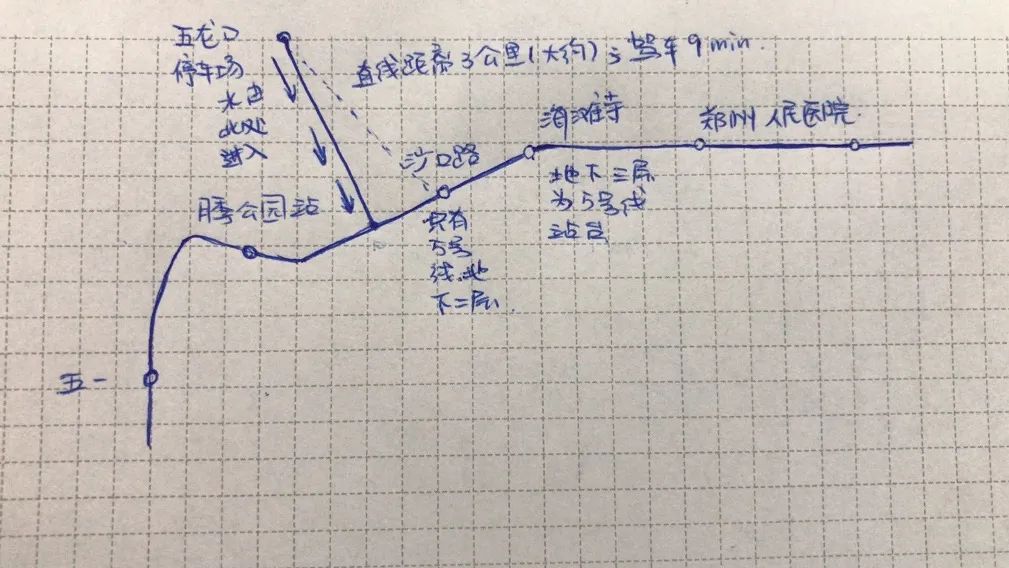 五龙口
停车场
水由
此处
进入
直线距离3公里(大约);驾车9min.
月季公园站
沙口路
只有
5号
线,地
下二层.
海滩寺
地下三层
为5号线
站台
郑州人民医院.
五一